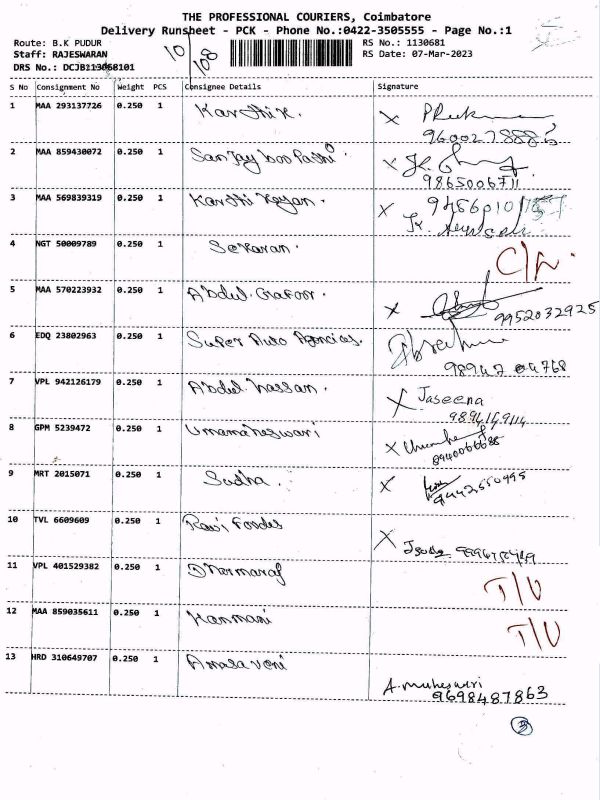 THE PROFESSIONAL COURIERS, Coimbatore
Delivery Runsheet - PCK - Phone No.:0422-3505555 - Page No.:1
Route: B.K PUDUR RS No.: 1130681
Staff: RAJESWARAN 10/108 RS Date: 07-Mar-2023
DRS No.: DCJB113068101
S No Consignment No Weight PCS Consignee Details Signature
1 MAA 293137726 0.250 1 Karthik. X
9600278886
2 MAA 859430072 0.250 1 Sanjay boo Pathi. X
9865006711
3 MAA 569839319 0.250 1 Karthi Keyan. X
4 NGT 50009789 0.250 1 Sekaran.
5 MAA 570223932 0.250 1 Abdul Gafoor. X
9952032925
6 EDQ 23802963 0.250 1 Super Auto Agencies.
7 VPL 942126179 0.250 1 Abdul hassan. X Jaseena
9894149114
8 GPM 5239472 0.250 1 Umamaheswari X
8940066688
9 MRT 2015071 0.250 1 Sudha. X
9442550495
10 TVL 6609609 0.250 1 Ravi Foodes X
11 VPL 401529382 0.250 1 Dhermaraj T/U
12 MAA 859035611 0.250 1 Kanmani T/U
13 HRD 310649707 0.250 1 Amasaveni
A. muheswari
9698487863